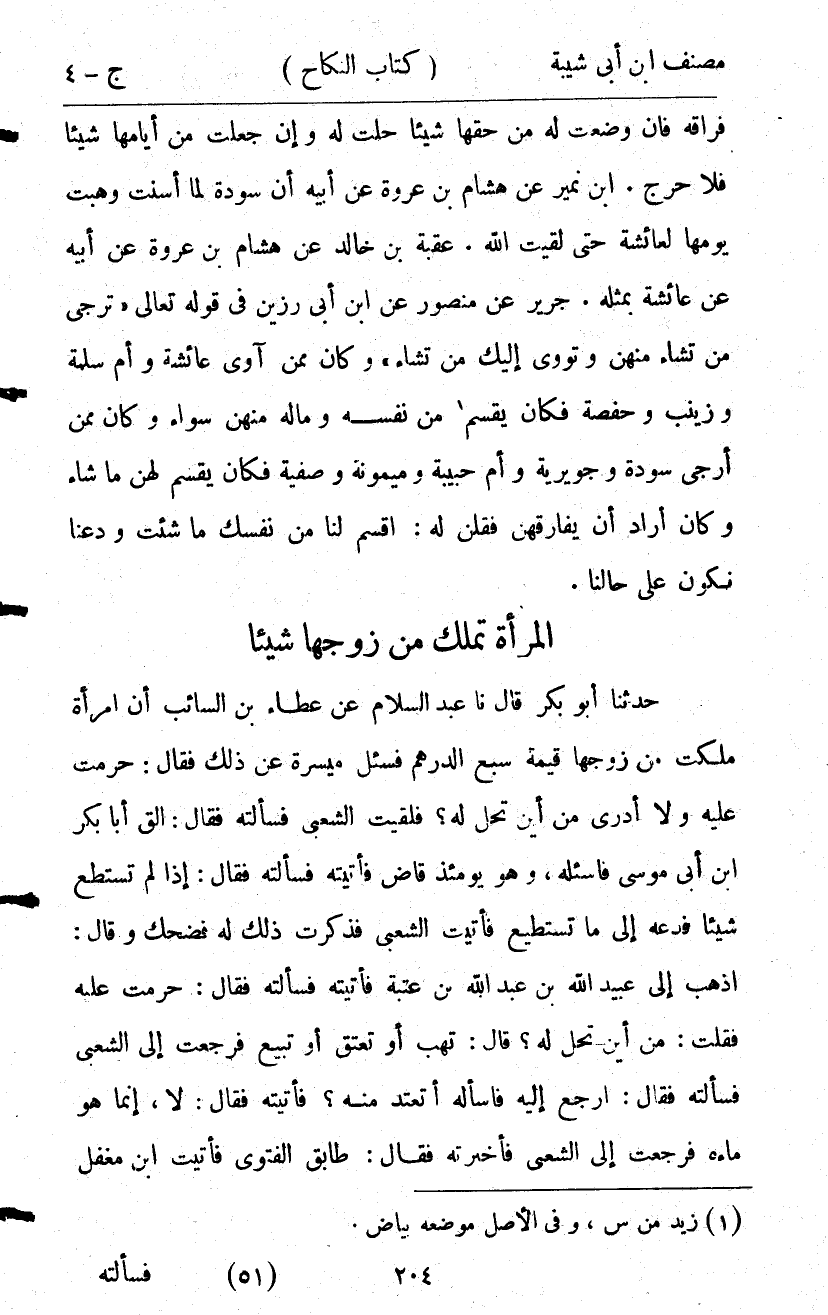 مصنف ابن أبى شيبة ( كتاب النكاح ) ج - ٤
فراقه فان وضعت له من حقها شيئا حلت له و إن جعلت من أيامها شيئا
فلا حرج . ابن نمير عن هشام بن عروة عن أبيه أن سودة لما أسنت وهبت
يومها لعائشة حتى لقيت الله . عقبة بن خالد عن هشام بن عروة عن أبيه
عن عائشة بمثله . جرير عن منصور عن ابن أبى رزين فى قوله تعالى « ترجى
من تشاء منهن و تووى إليك من تشاء » و كان ممن آوى عائشة و أم سلمة
و زينب و حفصة فكان يقسم ١ من نفسه و ماله منهن سواء و كان ممن
أرجى سودة و جويرية و أم حبيبة و ميمونة و صفية فكان يقسم لهن ما شاء
و كان أراد أن يفارقهن فقلن له : اقسم لنا من نفسك ما شئت و دعنا
نكون على حالنا .
المرأة تملك من زوجها شيئا
حدثنا أبو بكر قال نا عبد السلام عن عطاء بن السائب أن امرأة
ملكت من زوجها قيمة سبع الدرهم فسئل ميسرة عن ذلك فقال : حرمت
عليه و لا أدرى من أين تحل له ؟ فلقيت الشعبى فسألته فقال : الق أبا بكر
ابن أبى موسى فاسئله ، و هو يومئذ قاض فأتيته فسألته فقال : إذا لم تستطع
شيئا فدعه إلى ما تستطيع فأتيت الشعبى فذكرت ذلك له فضحك و قال :
اذهب إلى عبيد الله بن عبد الله بن عتبة فأتيته فسألته فقال : حرمت عليه
فقلت : من أين تحل له ؟ قال : تهب أو تعتق أو تبيع فرجعت إلى الشعبى
فسألته فقال : ارجع إليه فاسأله أتعتد منه ؟ فأتيته فقال : لا ، إنما هو
ماءه فرجعت إلى الشعبى فأخبرته فقال : طابق الفتوى فأتيت ابن مغفل
(١) زيد من س ، و فى الأصل موضعه بياض .
٢٠٤ (٥١) فسألته